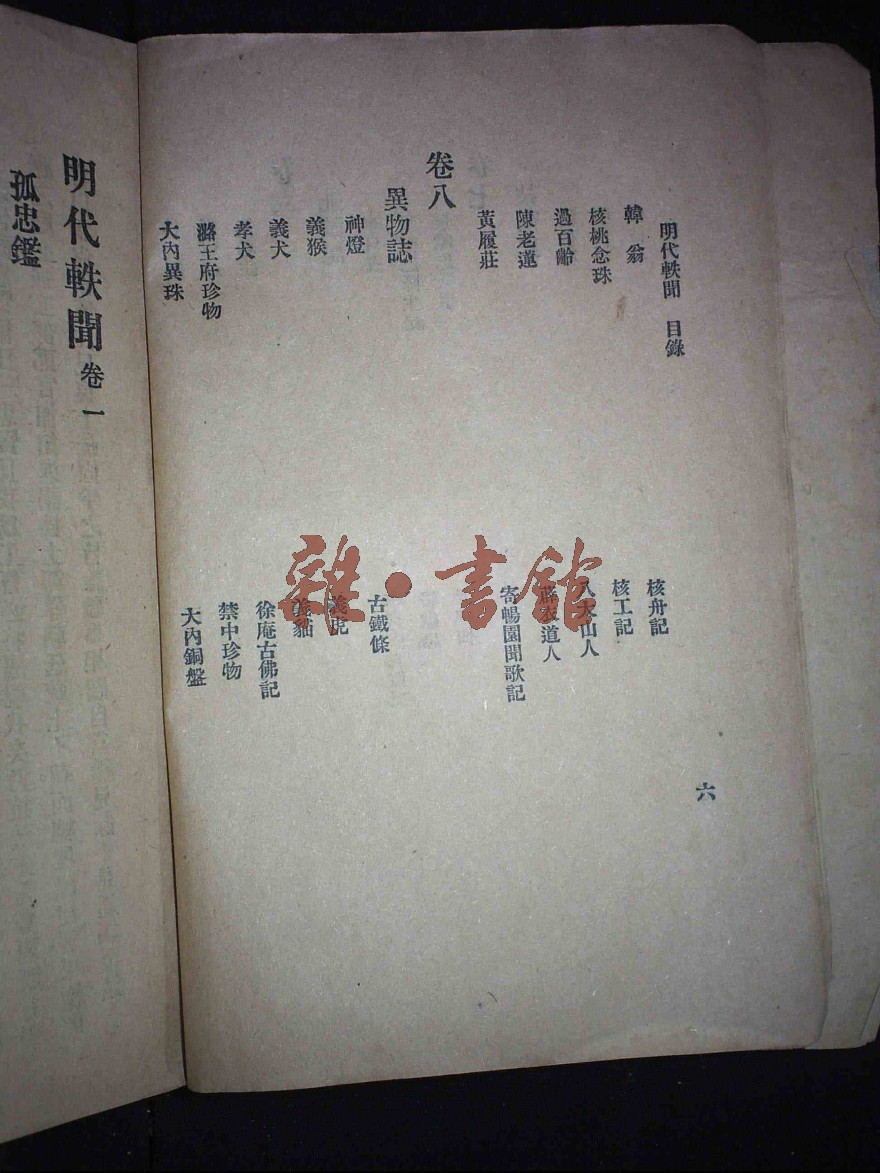 明代軼聞 目錄
六
韓翁
核舟記
核桃念珠
核工記
過百齡
八大山人
陳老蓮
衣道人
黃履莊
寄暢園聞歌記
卷八
異物誌
神燈
古鐵條
義猴
義虎
義犬
義貓
孝犬
徐庵古佛記
潞王府珍物
禁中珍物
大內異珠
大內銅盤
明代軼聞 卷一
孤忠鑑
雜·書館